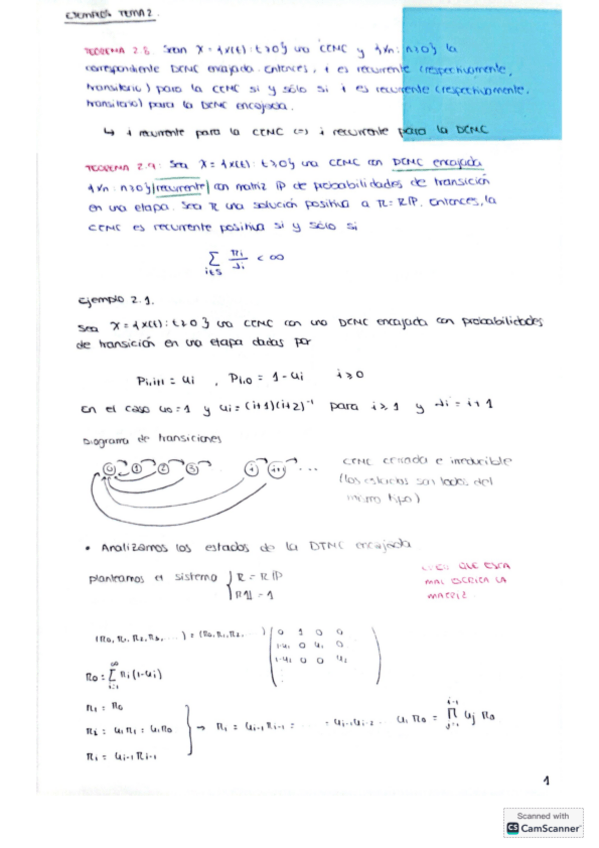 EJEMPLOS TEMA 2.
TEOREMA 2.8. Sean X = {X(t) : t≥0} una CTMC y {Yn : n≥0} la
correspondiente DTMC encajada. Entonces, i es recurrente (respectivamente,
transitorio) para la CTMC si y sólo si i es recurrente (respectivamente,
transitorio) para la DTMC encajada.
↳ i recurrente para la CTMC ⇔ i recurrente para la DTMC
TEOREMA 2.9. Sea X = {X(t) : t≥0} una CTMC con DTMC encajada
{Yn : n≥0} recurrente con matriz P de probabilidades de transición
en una etapa. Sea π una solución positiva a π = πP. Entonces, la
CTMC es recurrente positiva si y sólo si
∑ i∈S πi/λi < ∞
Ejemplo 2.1.
Sea X = {X(t) : t≥0} una CTMC con una DTMC encajada con probabilidades
de transición en una etapa dadas por
Pi,i+1 = ui , Pi,0 = 1-ui i≥0
En el caso u0 = 1 y ui = (i+1)(i+2)⁻¹ para i≥1 y λi = i+1
Diagrama de transiciones
0 1 2 3 i i+1 ...
CTMC cerrada e irreducible
(los estados son todos del
mismo tipo)
• Analizamos los estados de la DTMC encajada
planteamos el sistema { π = πP
π1 = 1
QUE ESTA
MAL ESCRITA LA
MATRIZ
(π0, π1, π2, π3, ...) = (π0, π1, π2, ...) ( 0 1 0 0
1-u1 0 u1 0
1-u2 0 0 u2
π0 = ∑ i=1 ∞ πi(1-ui)
π1 = π0
π2 = u1π1 = u1π0
πi = ui-1πi-1
→ πi = ui-1πi-1 = ... = ui-1ui-2 ... u1π0 = ∏ j=1 i-1 uj π0
1
Scanned with
CS CamScanner